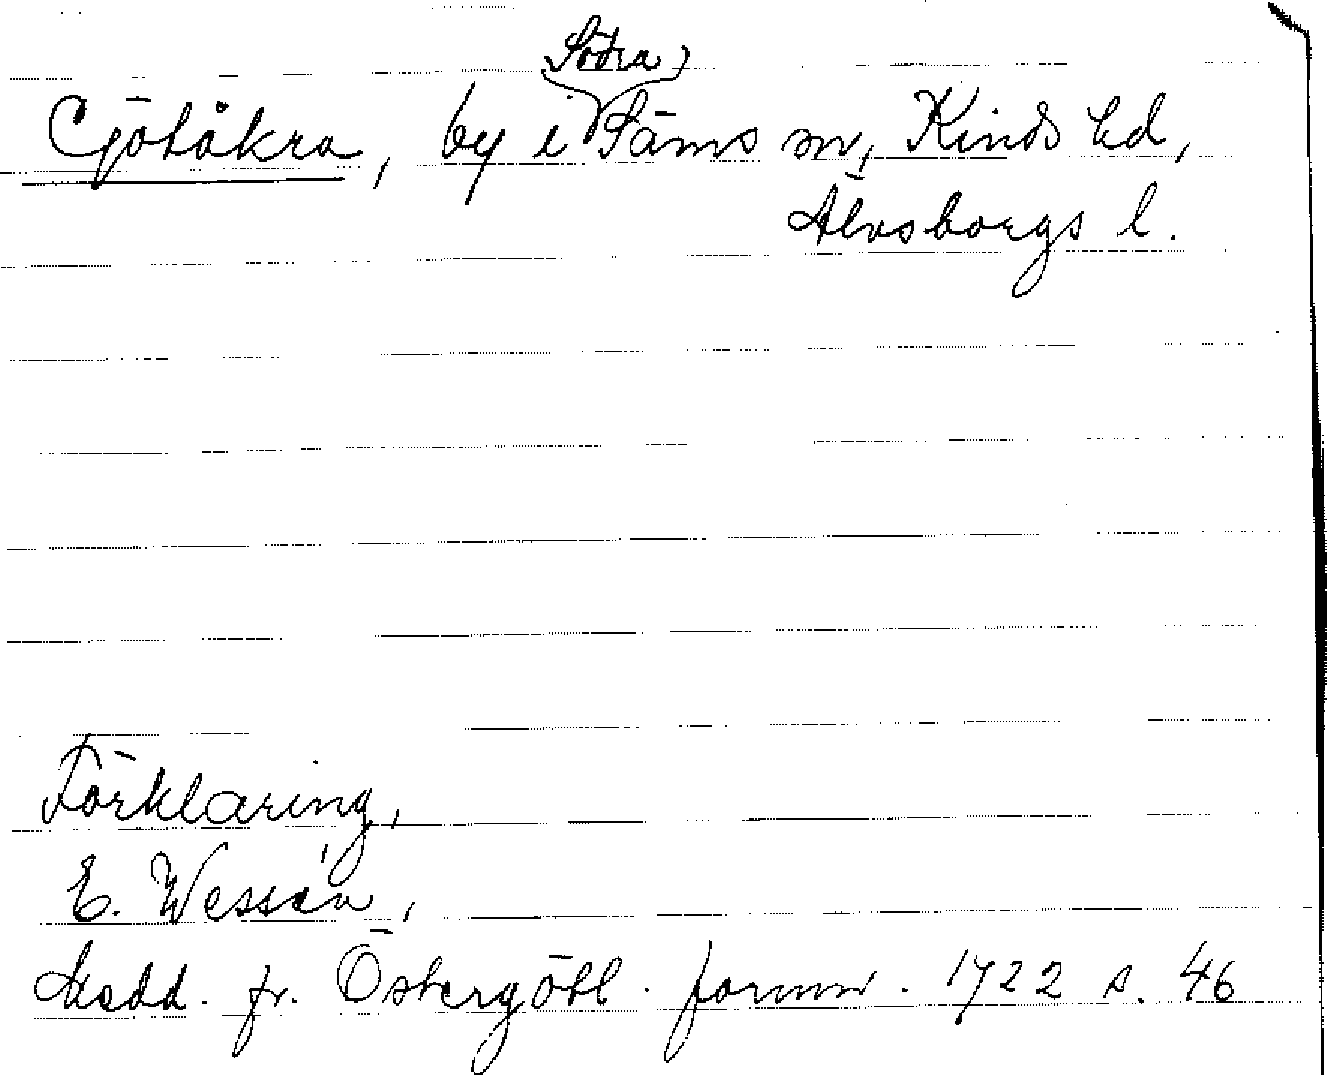 Götåkra, by i Södra Säms sn, Kinds hd,
Älvsborgs l.
Förklaring,
E. Wessén,
Medd. fr. Östergötl. fornm. 1722 s. 46